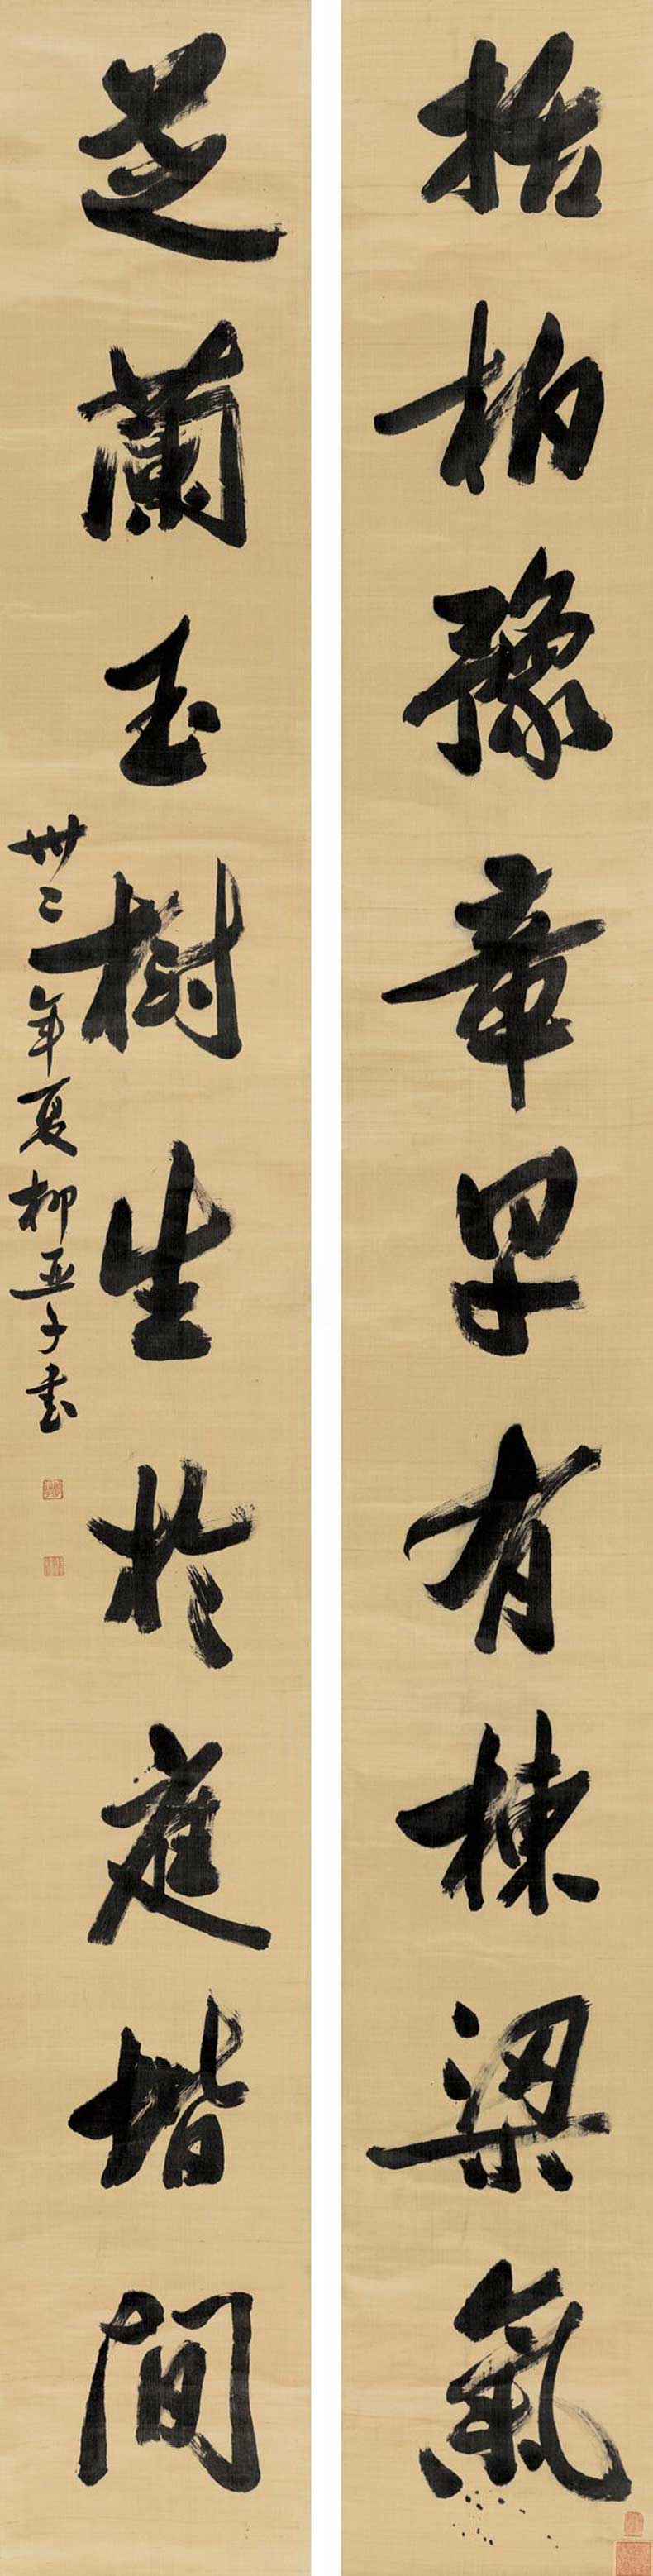 栝柏豫章早有棟梁氣
芝蘭玉樹生於庭堦間
卅二年夏柳亞子書